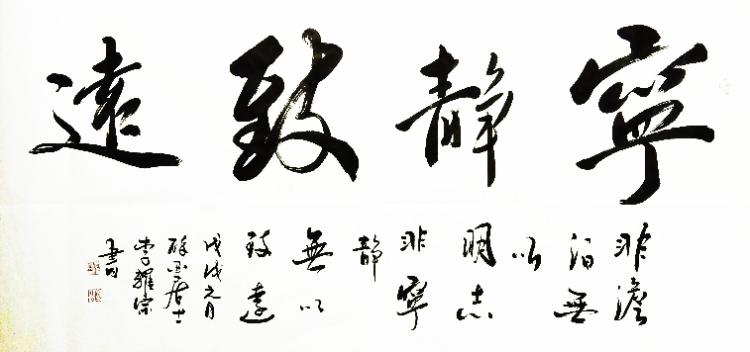 寧靜致遠
非澹
泊無
以
明志
非寧
靜
無以
致遠
戊戌元月
醉墨居士
李耀宗
書